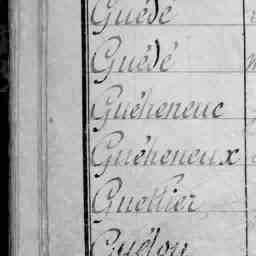 Guédé
Guédé
Guéheneuc
Guéheneux
Guellier
Guélou